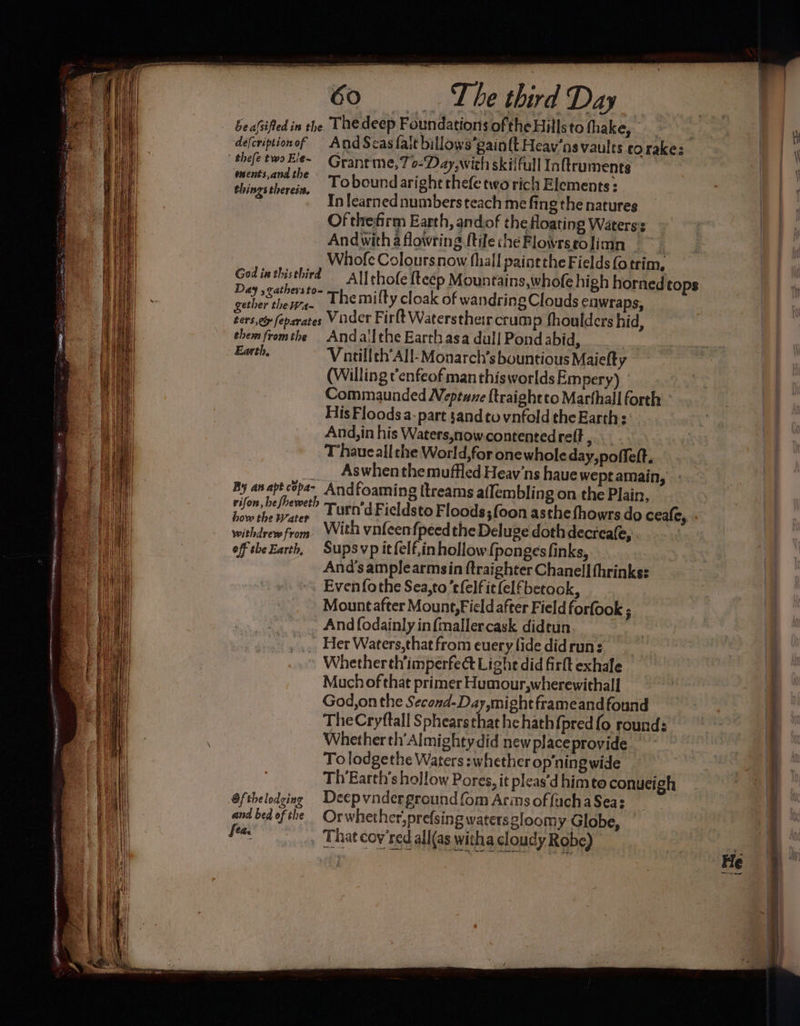 60 The third Day
be assisted in the
description of
these two Ele-
ments, and the
things therein.
The deep Foundations of the Hills to shake,
And Seas salt billows 'gainst Heav'ns vaults to rake:
Grant me, To-Day, with skilfull Instruments
To bound aright these two rich Elements:
In learned numbers teach me sing the natures
Of the firm Earth, and of the floating Waters:
And with a flowring stile the Flowrs to limn
Whose Colours now shall paint the Fields so trim.
God in this third
Day, gathers to-
gether the Wa-
ters, & separates
them from the
Earth.
All those steep Mountains, whose high horned tops
The misty cloak of wandring Clouds enwraps,
Vnder First Waters their crump shoulders hid,
And all the Earth as a dull Pond abid,
Vntill th'All-Monarch's bountious Maiesty
(Willing t'enfeof man this worlds Empery)
Commaunded Neptune straight to Marshall forth
His Floods a-part, and to vnfold the Earth:
And, in his Waters, now contented rest,
T'haue all the World, for one whole day, possest.
By an apt cōpa-
rison, he sheweth
how the Water
withdrew from
off the Earth.
As when the muffled Heav'ns haue wept amain,
And foaming streams assembling on the Plain,
Turn'd Fields to Floods; soon as the showrs do cease,
With vnseen speed the Deluge doth decrease,
Sups vp it self, in hollow sponges sinks,
And's ample arms in straighter Chanell shrinks:
Even so the Sea, to 't self it self betook,
Mount after Mount, Field after Field forsook;
And sodainly in smaller cask did tun
Her Waters, that from euery side did run:
Whether th'imperfect Light did first exhale
Much of that primer Humour, wherewithall
God, on the Second-Day, might frame and found
The Crystall Sphears that he hath spred so round:
Whether th'Almighty did new place provide
To lodge the Waters: whether op'ning wide
Th'Earth's hollow Pores, it pleas'd him to conueigh
Of the lodging
and bed of the
sea.
Deep vnder ground som Arms of such a Sea:
Or whether, pressing waters gloomy Globe,
That cov'red all (as with a cloudy Robe)
He